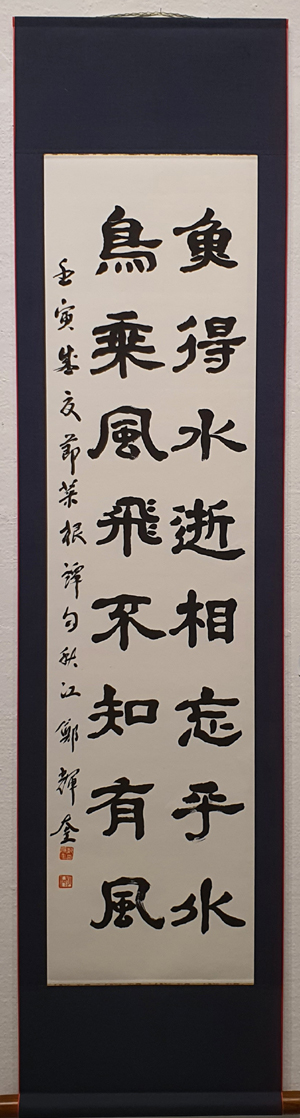 魚得水逝相忘乎水
鳥乘風飛不知有風
壬寅盛夏節菜根譚句秋江鄭輝奎